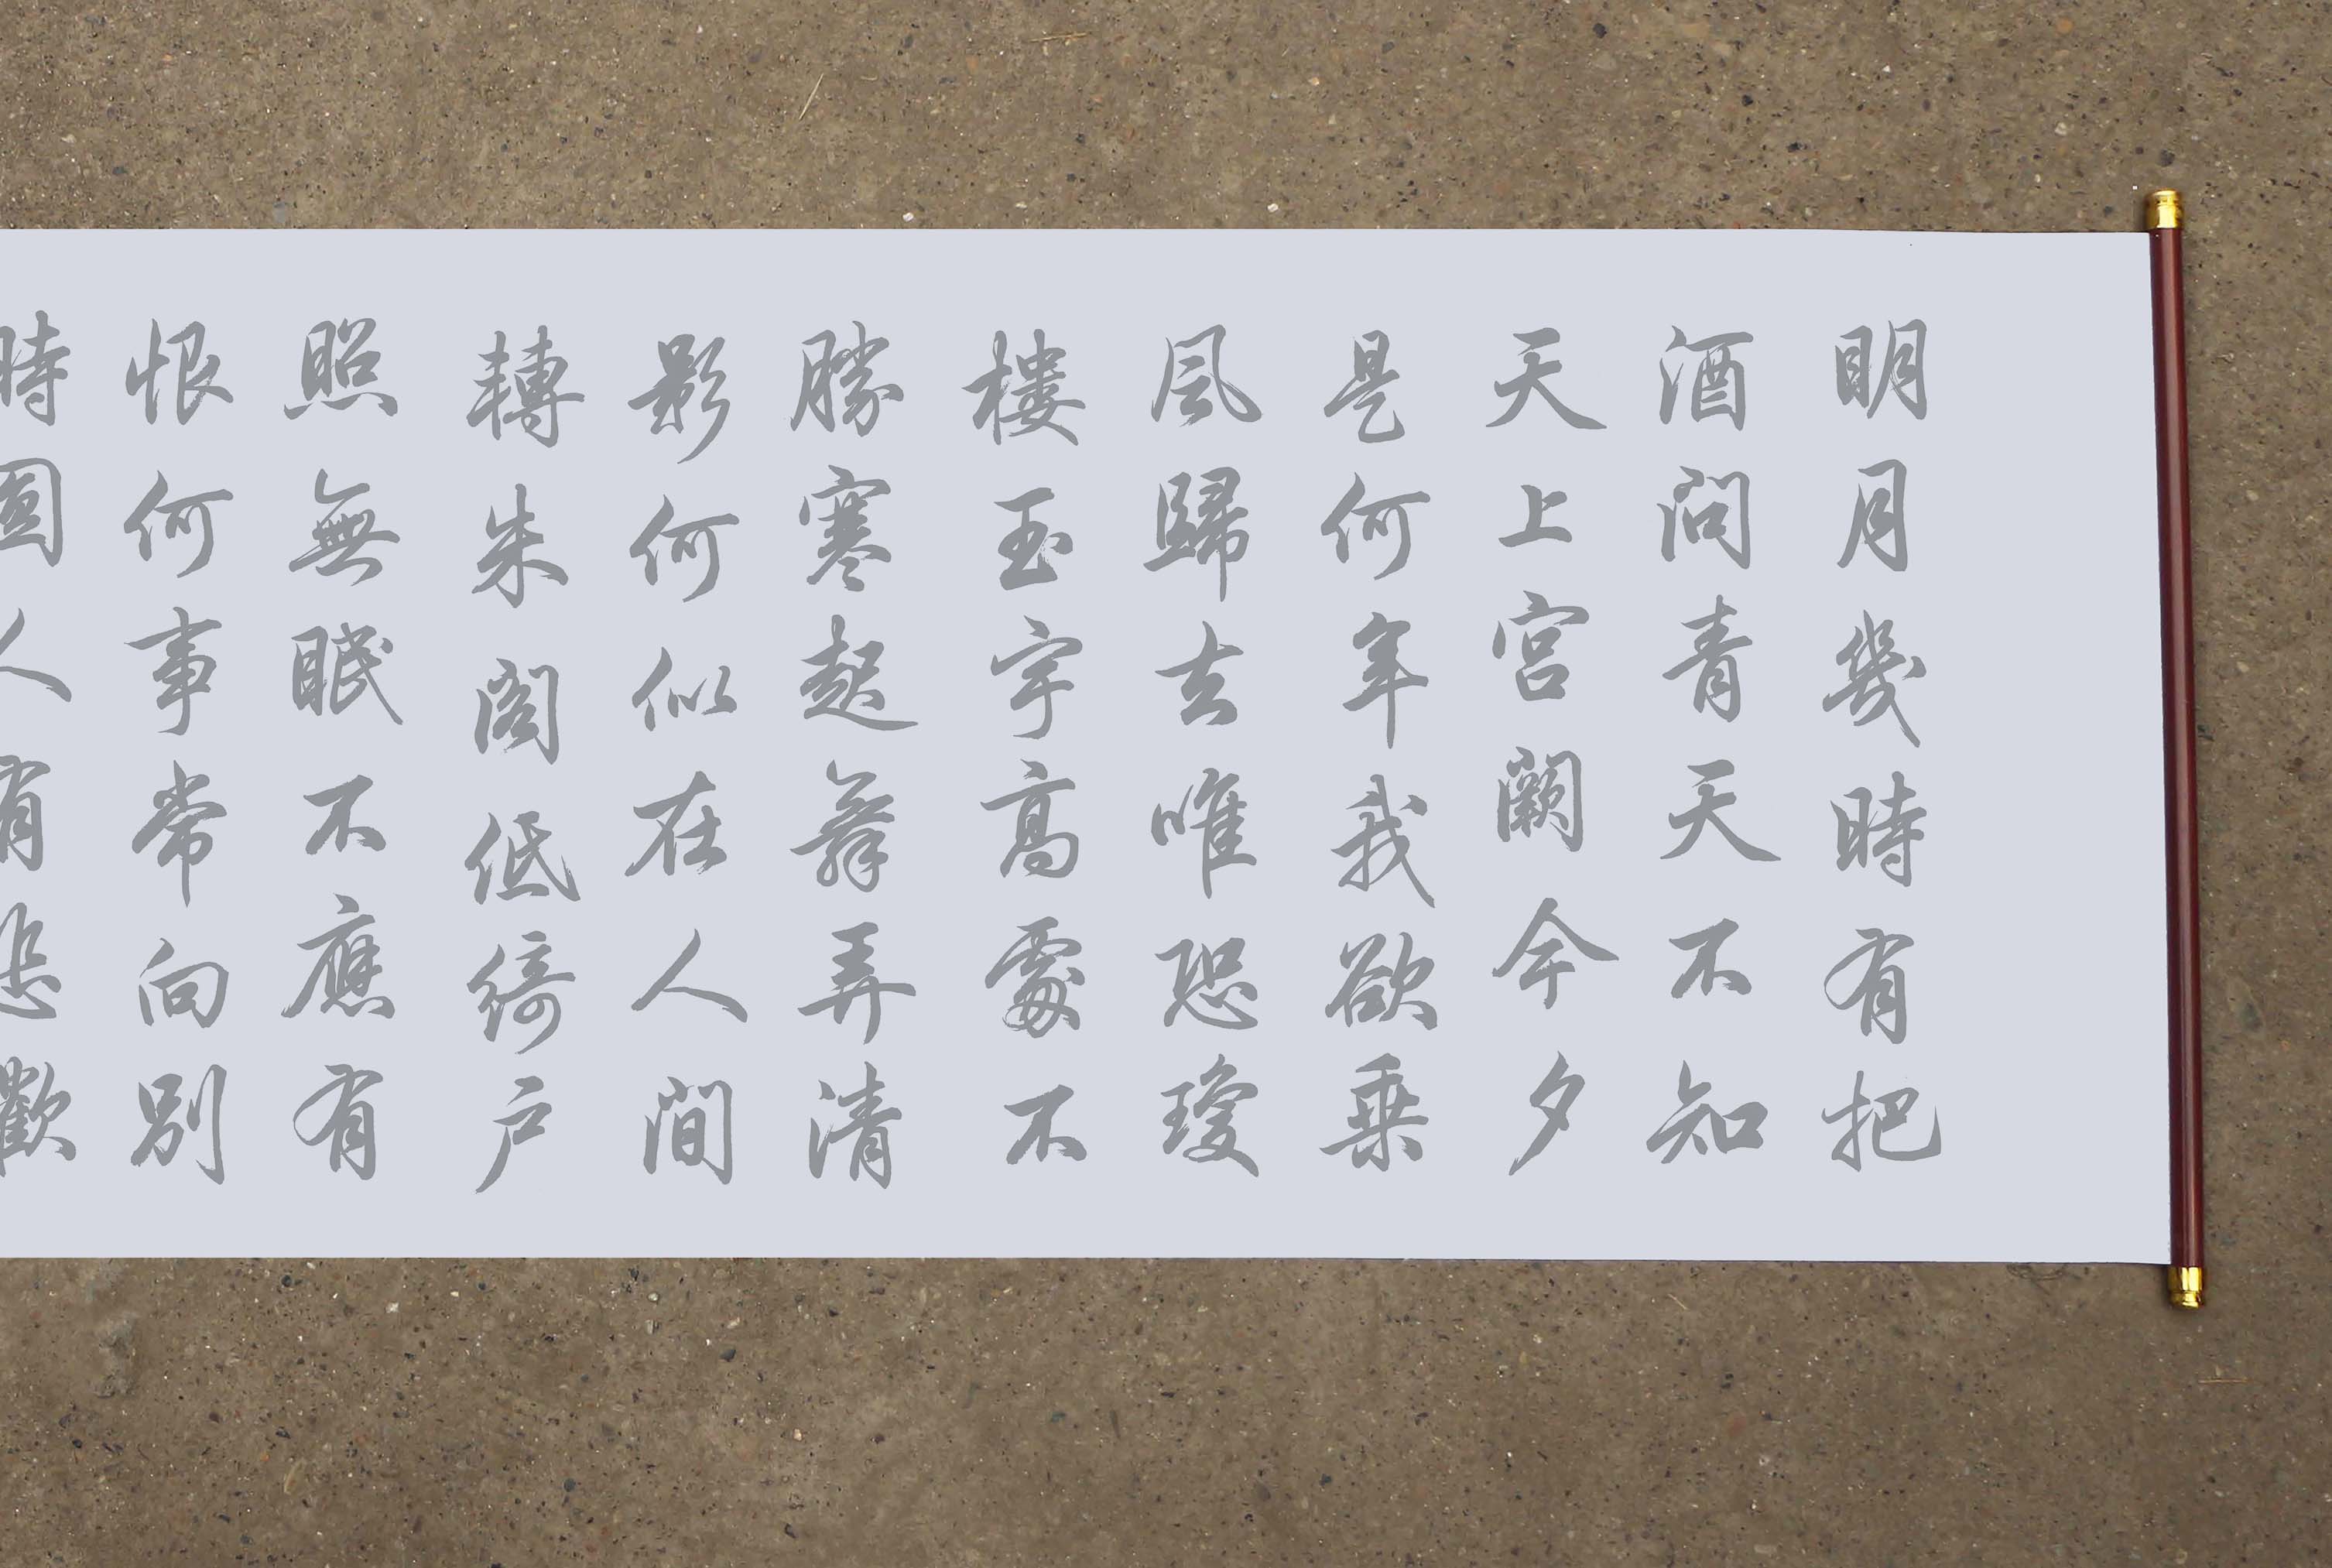 明月幾時有把
酒問青天不知
天上宮闕今夕
是何年我欲乗
風歸去唯恐瓊
樓玉宇高處不
勝寒起舞弄清
影何似在人間
轉朱閣低綺戶
照無眠不應有
恨何事常向別
時圓人有悲歡